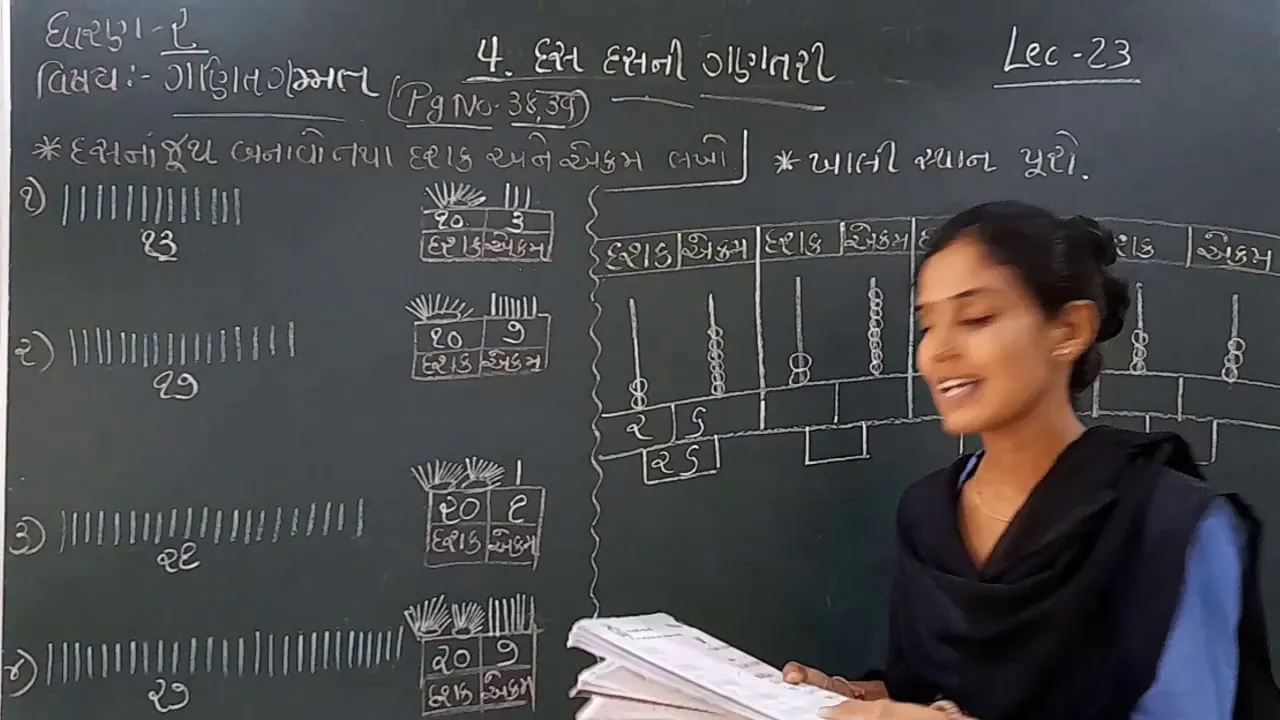 ધોરણ-૨
4. દસ દસની ગણતરી
Lec-23
વિષય:- ગણિતગમ્મત
(Pg No-૩૪,૩૫)
* દસનાં જૂથ બનાવો તથા દશક અને એકમ લખો
૧)
૧૩
૧૦ ૩
દશક એકમ
૨)
૧૭
૧૦ ૭
દશક એકમ
૩)
૨૧
૨૦ ૧
દશક એકમ
૪)
૨૭
૨૦ ૭
દશક એકમ
* ખાલી સ્થાન પૂરો.
દશક એકમ દશક એકમ શક એકમ
૨ ૬
૨૬